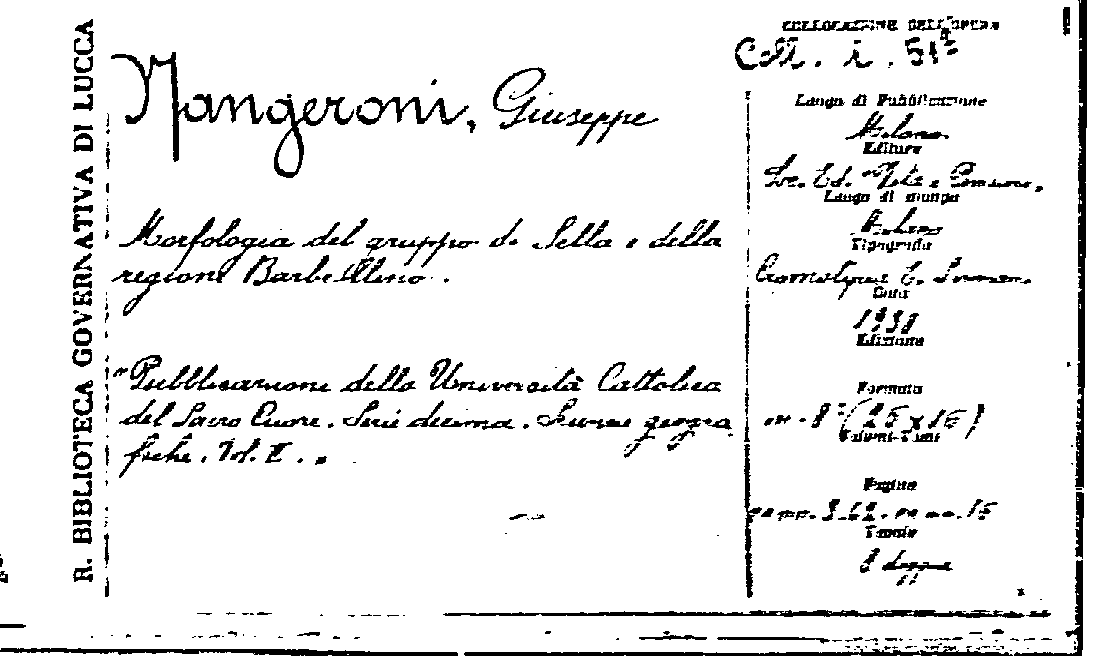 R. BIBLIOTECA GOVERNATIVA DI LUCCA
Nangeroni, Giuseppe
Morfologia del gruppo di Sella e della
regione Barbellino.
"Pubblicazione della Università Cattolica
del Sacro Cuore. Serie decima. Scienze geogra
fiche. Vol. II. "
COLLOCAZIONE DELL'OPERA
Coll. i. 51
Luogo di Pubblicazione
Milano
Editore
Soc. Ed. Vita e Pensiero,
Luogo di stampa
Milano
Tipografia
Cromotipia E. Sormani
Data
1938
Edizione
Formato
in-8° (25 x 15)
Volumi-Tomi
Pagine
Tavole